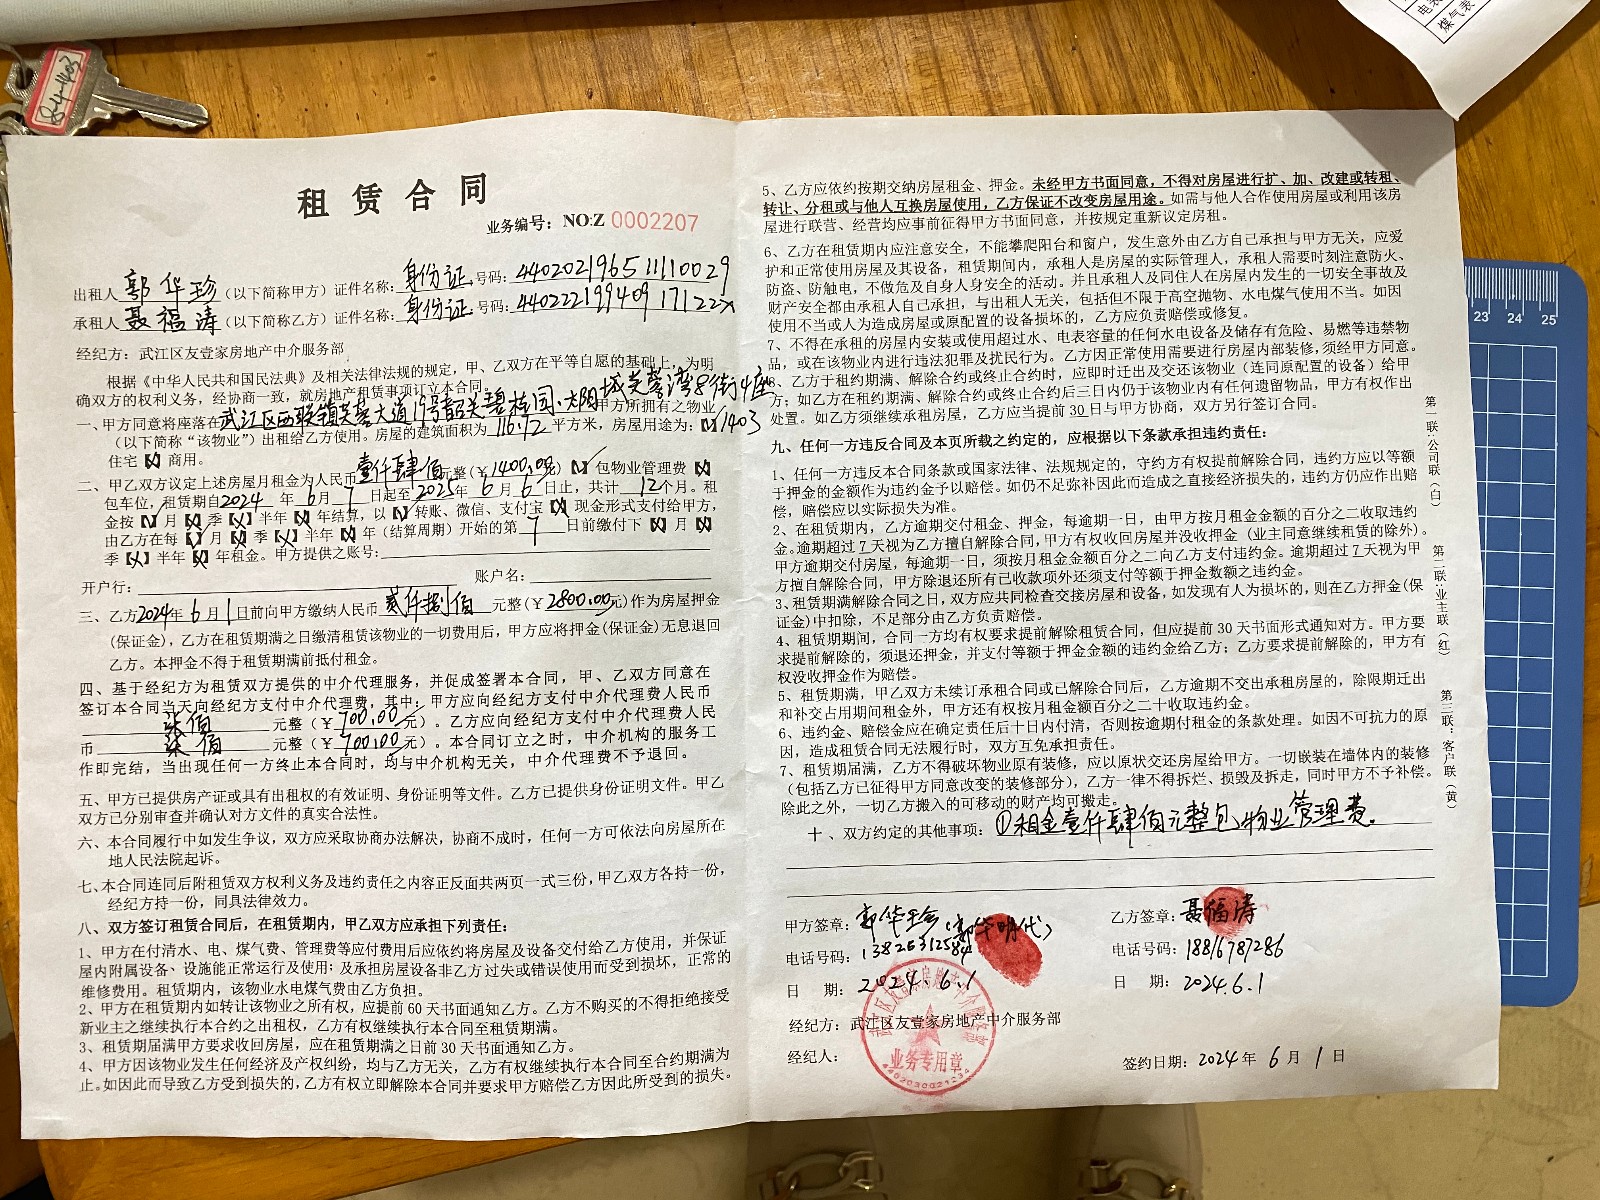 电表
煤气表
8-4-1403
租赁合同
业务编号：NO:Z 0002207
出租人 郭华珍 (以下简称甲方) 证件名称：身份证 号码：440202196511110029
承租人 聂福涛 (以下简称乙方) 证件名称：身份证 号码：44022219940917122X
经纪方：武江区友壹家房地产中介服务部
根据《中华人民共和国民法典》及相关法律法规的规定，甲、乙双方在平等自愿的基础上，为明
确双方的权利义务，经协商一致，就房地产租赁事项订立本合同。
一、甲方同意将座落在武江区西联镇芙蓉大道19号韶关碧桂园·太阳城芙蓉湾8街4座 甲方所拥有之物业
(以下简称“该物业”) 出租给乙方使用。房屋的建筑面积为 116.72 平方米，房屋用途为： 1403
住宅 商用。
二、甲乙双方议定上述房屋月租金为人民币 壹仟肆佰 元整(￥1400.00元) 包物业管理费
包车位，租赁期自2024 年 6月 7 日起至 2025年 6 月 6 日止，共计 12个月。租
金按 月 季 半年 年结算，以 转账、微信、支付宝 现金形式支付给甲方，
由乙方在每 月 季 半年 年 (结算周期) 开始的第 7 日前缴付下 月
季 半年 年租金。甲方提供之账号：
开户行： 账户名：
三、乙方2024年 6 月 1日前向甲方缴纳人民币 贰仟捌佰 元整(￥2800.00元)作为房屋押金
(保证金)，乙方在租赁期满之日缴清租赁该物业的一切费用后，甲方应将押金(保证金)无息退回
乙方。本押金不得于租赁期满前抵付租金。
四、基于经纪方为租赁双方提供的中介代理服务，并促成签署本合同，甲、乙双方同意在
签订本合同当天向经纪方支付中介代理费，其中：甲方应向经纪方支付中介代理费人民币
柒佰 元整(￥700.00元)。乙方应向经纪方支付中介代理费人民
币 柒佰 元整(￥700.00元)。本合同订立之时，中介机构的服务工
作即完结，当出现任何一方终止本合同时，均与中介机构无关，中介代理费不予退回。
五、甲方已提供房产证或具有出租权的有效证明、身份证明等文件。乙方已提供身份证明文件。甲乙
双方已分别审查并确认对方文件的真实合法性。
六、本合同履行中如发生争议，双方应采取协商办法解决，协商不成时，任何一方可依法向房屋所在
地人民法院起诉。
七、本合同连同后附租赁双方权利义务及违约责任之内容正反面共两页一式三份，甲乙双方各持一份，
经纪方持一份，同具法律效力。
八、双方签订租赁合同后，在租赁期内，甲乙双方应承担下列责任：
1、甲方在付清水、电、煤气费、管理费等应付费用后应依约将房屋及设备交付给乙方使用，并保证
屋内附属设备、设施能正常运行及使用；及承担房屋设备非乙方过失或错误使用而受到损坏，正常的
维修费用。租赁期内，该物业水电煤气费由乙方负担。
2、甲方在租赁期内如转让该物业之所有权，应提前60天书面通知乙方。乙方不购买的不得拒绝接受
新业主之继续执行本合约之出租权，乙方有权继续执行本合同至租赁期满。
3、租赁期届满甲方要求收回房屋，应在租赁期满之日前30天书面通知乙方。
4、甲方因该物业发生任何经济及产权纠纷，均与乙方无关，乙方有权继续执行本合同至合约期满为
止。如因此而导致乙方受到损失的，乙方有权立即解除本合同并要求甲方赔偿乙方因此所受到的损失。
5、乙方应依约按期交纳房屋租金、押金。未经甲方书面同意，不得对房屋进行扩、加、改建或转租、
转让、分租或与他人互换房屋使用，乙方保证不改变房屋用途。如需与他人合作使用房屋或利用该房
屋进行联营、经营均应事前征得甲方书面同意，并按规定重新议定房租。
6、乙方在租赁期内应注意安全，不能攀爬阳台和窗户，发生意外由乙方自己承担与甲方无关，应爱
护和正常使用房屋及其设备，租赁期间内，承租人是房屋的实际管理人，承租人需要时刻注意防火、
防盗、防触电，不做危及自身人身安全的活动。并且承租人及同住人在房屋内发生的一切安全事故及
财产安全都由承租人自己承担，与出租人无关，包括但不限于高空抛物、水电煤气使用不当。如因
使用不当或人为造成房屋或原配置的设备损坏的，乙方应负责赔偿或修复。
7、不得在承租的房屋内安装或使用超过水、电表容量的任何水电设备及储存有危险、易燃等违禁物
品，或在该物业内进行违法犯罪及扰民行为。乙方因正常使用需要进行房屋内部装修，须经甲方同意。
8、乙方于租约期满、解除合约或终止合约时，应即时迁出及交还该物业(连同原配置的设备)给甲
方；如乙方在租约期满、解除合约或终止合约后三日内仍于该物业内有任何遗留物品，甲方有权作出
处置。如乙方须继续承租房屋，乙方应当提前30日与甲方协商，双方另行签订合同。
九、任何一方违反合同及本页所载之约定的，应根据以下条款承担违约责任：
1、任何一方违反本合同条款或国家法律、法规规定的，守约方有权提前解除合同，违约方应以等额
于押金的金额作为违约金予以赔偿。如仍不足弥补因此而造成之直接经济损失的，违约方仍应作出赔
偿，赔偿应以实际损失为准。
2、在租赁期内，乙方逾期交付租金、押金，每逾期一日，由甲方按月租金金额的百分之二收取违约
金。逾期超过7天视为乙方擅自解除合同，甲方有权收回房屋并没收押金(业主同意继续租赁的除外)。
甲方逾期交付房屋，每逾期一日，须按月租金金额百分之二向乙方支付违约金。逾期超过7天视为甲
方擅自解除合同，甲方除退还所有已收款项外还须支付等额于押金数额之违约金。
3、租赁期满解除合同之日，双方应共同检查交接房屋和设备，如发现有人为损坏的，则在乙方押金(保
证金)中扣除，不足部分由乙方负责赔偿。
4、租赁期期间，合同一方均有权要求提前解除租赁合同，但应提前30天书面形式通知对方。甲方要
求提前解除的，须退还押金，并支付等额于押金金额的违约金给乙方；乙方要求提前解除的，甲方有
权没收押金作为赔偿。
5、租赁期满，甲乙双方未续订承租合同或已解除合同后，乙方逾期不交出承租房屋的，除限期迁出
和补交占用期间租金外，甲方还有权按月租金额百分之二十收取违约金。
6、违约金、赔偿金应在确定责任后十日内付清，否则按逾期付租金的条款处理。如因不可抗力的原
因，造成租赁合同无法履行时，双方互免承担责任。
7、租赁期届满，乙方不得破坏物业原有装修，应以原状交还房屋给甲方。一切嵌装在墙体内的装修
(包括乙方已征得甲方同意改变的装修部分)，乙方一律不得拆烂、损毁及拆走，同时甲方不予补偿。
除此之外，一切乙方搬入的可移动的财产均可搬走。
十、双方约定的其他事项：①租金壹仟肆佰元整包物业管理费。
甲方签章：郭华珍(郭华明代)
电话号码：13826312584
日 期：2024.6.1
乙方签章：聂福涛
电话号码：18816787286
日 期：2024.6.1
经纪方：武江区友壹家房地产中介服务部
经纪人：
签约日期：2024年 6 月 1 日
武江区友壹家房地产中介服务部
业务专用章
4402030021234
第一联：公司联(白)
第二联：业主联(红)
第三联：客户联(黄)
23 24 25